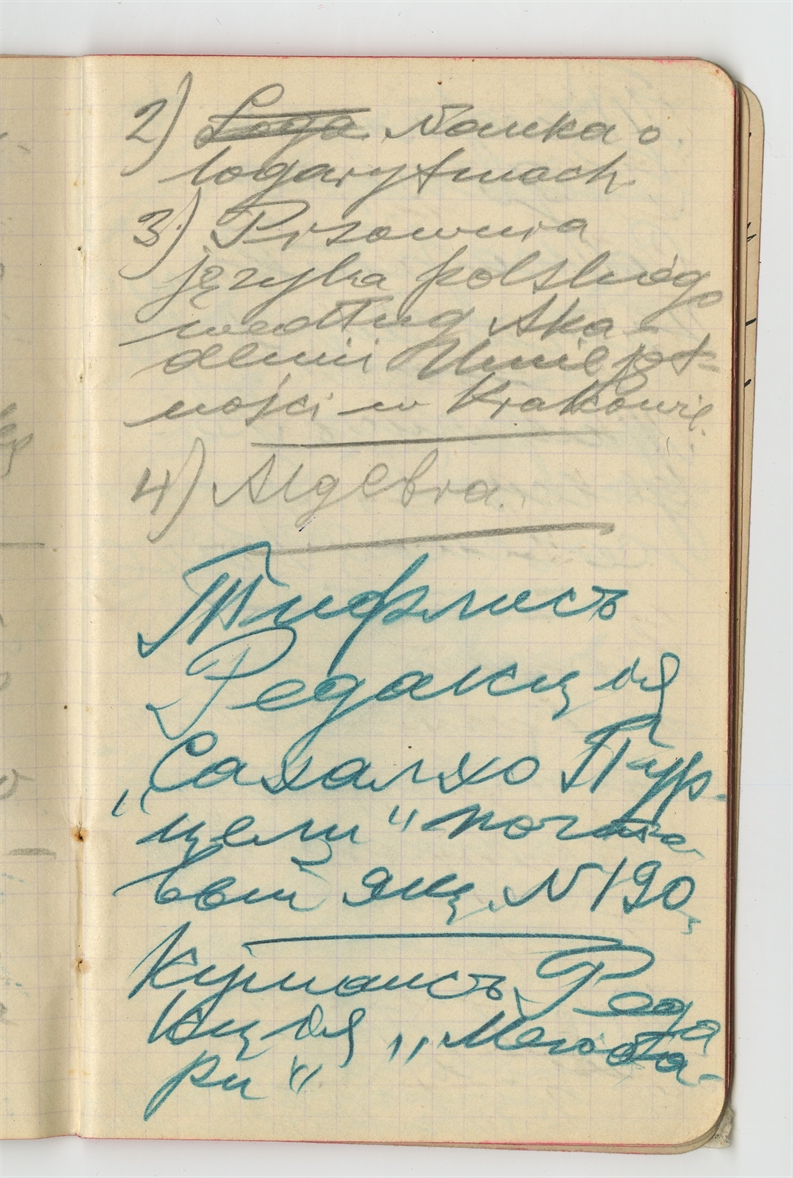 2) Loga Nauka o
logarytmach.
3) Pisownia
języka polskiego
według Aka-
demii Umiejęt-
ności w Krakowie.
4) Algebra.
Тифлисъ
Редакція
„Сахалхо Пур-
цели" почто
вый ящ. N 190.
Кутаисъ, Реда
кція „
ри"